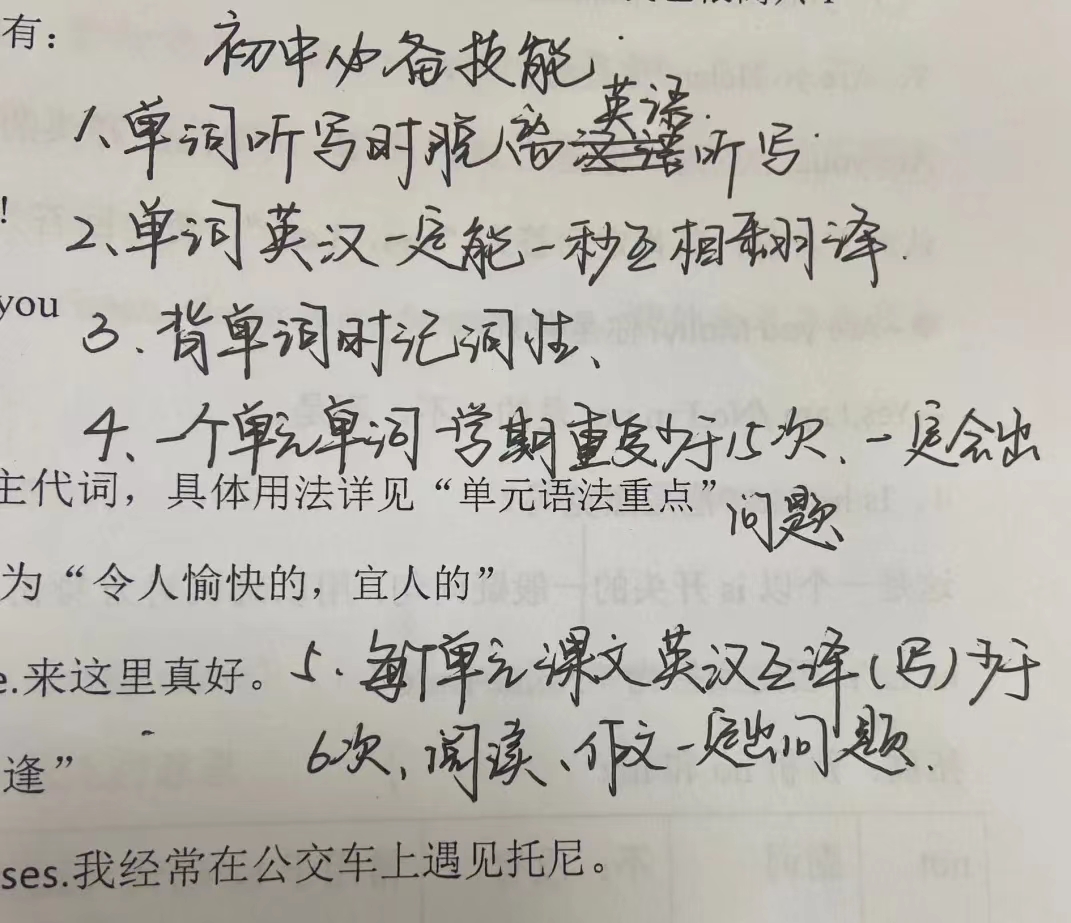 有：
初中必备技能：
英语
1、单词听写时脱离汉语听写.
!
2、单词英汉一定能一秒互相翻译.
you
3、背单词时记词性、
4、一个单元单词一学期重复少于15次、一定会出
主代词，具体用法详见“单元语法重点”
问题
为“令人愉快的，宜人的”
e.来这里真好。
5.每个单元课文英汉互译(写)少于
6次、阅读、作文一定出问题.
逢”
ses.我经常在公交车上遇见托尼。